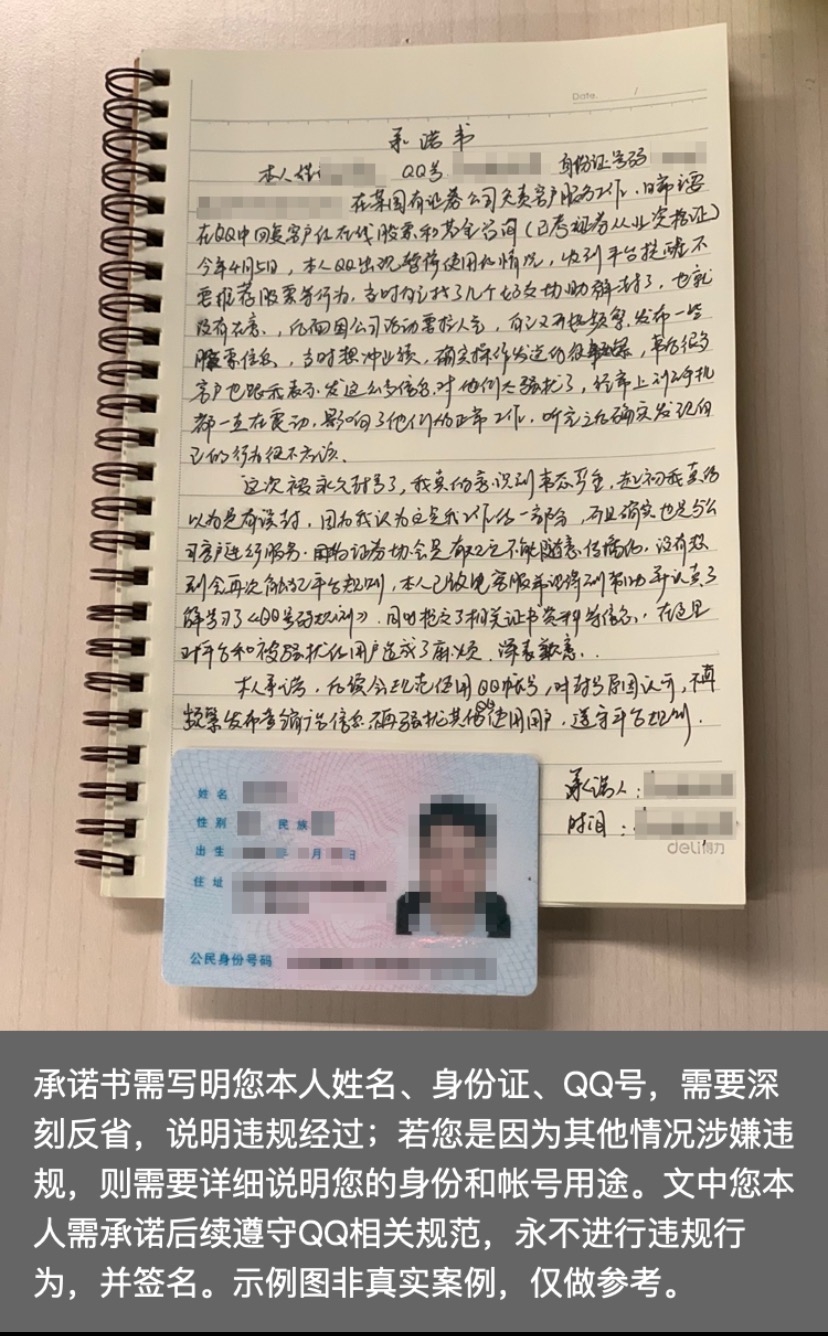 Date. /
承诺书
本人 QQ号 身份证号码
在某国有证券公司负责客户服务工作,日常主要
在QQ中回复客户在线股票和基金咨询(已考证券从业资格证)
今年4月5日,本人QQ出现暂停使用的情况,收到平台提醒不
要推荐股票等行为,当时自己找了几个好友协助解封了,也就
没有在意,后面因公司活动要拉人气,自己又开始频繁发布一些
股票信息,当时想冲业绩,确实操作发送的很频繁,事后很多
客户也跟我表示发这么多信息对他们太骚扰了,经常上班手机
都一直在震动,影响了他们的正常工作,听完之后确实发现自
己的行为很不应该、
这次被永久封号了,我真的意识到事态严重,起初我真的
以为是有误封,因为我认为这是我工作的一部分,而且确实也是与公
司客户进行服务.因为证券协会是有规定不能随意传播的,没有想
到会再次触犯平台规则,本人已致电客服并记得到帮助并认真了
解学习了《QQ号码规则》.同时提交了相关证书资料等信息,在这里
对平台和被骚扰的用户造成了麻烦.深表歉意..
本人承诺,后续会规范使用QQ帐号,对封号原因认可,不再
频繁发布营销广告信息不再骚扰其他QQ使用用户,遵守平台规则.
承诺人:
时间:
deli得力
姓名
性别 民族
出生 年 月 日
住址
公民身份号码
承诺书需写明您本人姓名、身份证、QQ号,需要深
刻反省,说明违规经过;若您是因为其他情况涉嫌违
规,则需要详细说明您的身份和帐号用途。文中您本
人需承诺后续遵守QQ相关规范,永不进行违规行
为,并签名。示例图非真实案例,仅做参考。